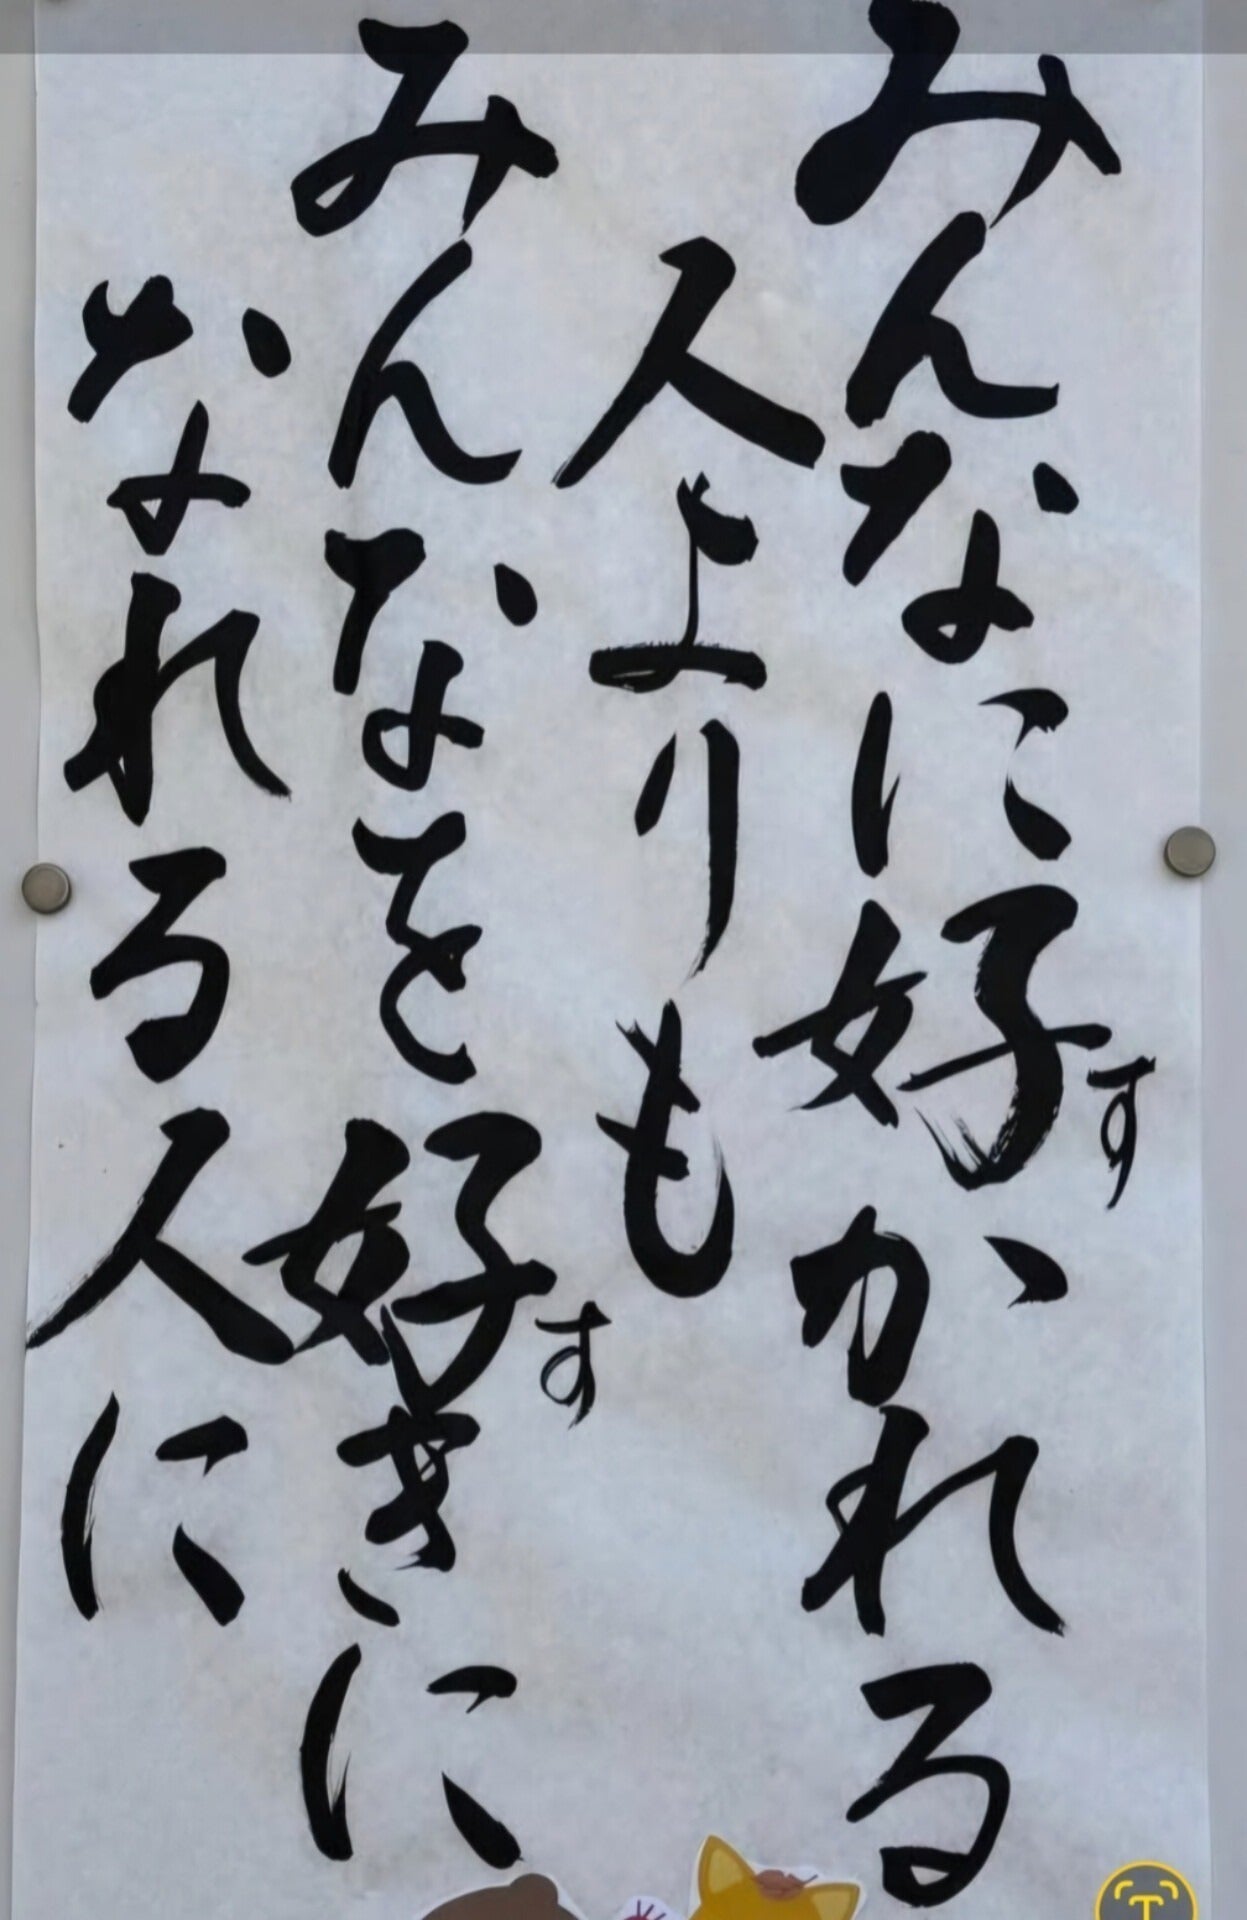 みんなに好かれる
す
人よりも
みんなを好きに
す
なれる人に